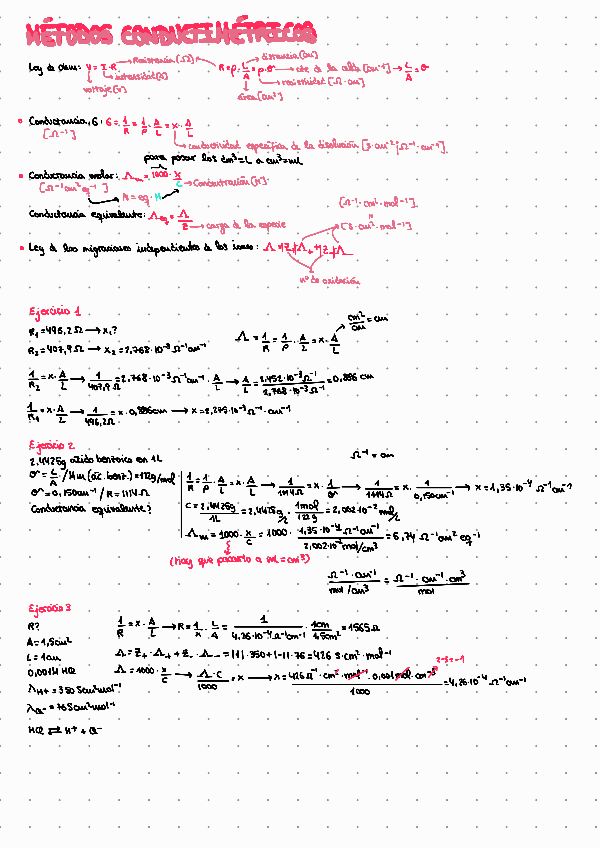 MÉTODOS CONDUCTIMÉTRICOS
Ley de ohm: V = I·R → Resistencia (Ω)
intensidad (A)
voltaje (V)
R = ρ · L/A = ρ·σ → cte de la celda [cm⁻¹] → L/A = σ
distancia [cm]
resistividad [Ω·cm]
área [cm²]
• Conductancia, G: G = 1/R = 1/ρ · A/L = x · A/L
[Ω⁻¹]
conductividad específica de la disolución [S·cm⁻¹/Ω⁻¹·cm⁻¹]
para pasar los dm³=L a cm³=mL
• Conductancia molar: Λm = 1000·x/C → Concentración [M]
[Ω⁻¹cm²eq⁻¹]
N = eq · M
Conductancia equivalente: Λeq = Λ/z → carga de la especie
[Ω⁻¹·cm²·mol⁻¹]
[S·cm²·mol⁻¹]
• Ley de las migraciones independientes de los iones: Λ = |Z₊|Λ₊ + |Z₋|Λ₋
nº de oxidación
Ejercicio 1
R₁ = 496,2 Ω → x₁?
R₂ = 407,9 Ω → x₂ = 2,768·10⁻³ Ω⁻¹cm⁻¹
Λ = 1/R = 1/ρ · A/L = x · A/L
cm²/cm = cm
1/R₂ = x · A/L → 1/407,9 Ω = 2,768·10⁻³ Ω⁻¹cm⁻¹ · A/L → A/L = 2,452·10⁻³ Ω⁻¹/2,768·10⁻³ Ω⁻¹ = 0,886 cm
1/R₁ = x · A/L → 1/496,2 Ω = x · 0,886cm → x = 2,275·10⁻³ Ω⁻¹·cm⁻¹
Ejercicio 2
2,4425g ácido benzoico en 1L
σ = L/A / Mm (ác. benz.) = 122g/mol
σ = 0,150cm⁻¹ / R = 1114 Ω
Conductancia equivalente?
Ω⁻¹ = cm
1/R = 1/ρ · A/L = x · A/L → 1/1114 Ω = x · 1/σ → 1/1114 Ω = x · 1/0,150cm⁻¹ → x = 1,35·10⁻⁴ Ω⁻¹cm⁻¹
C = 2,4425g/1L = 2,4425 g/L · 1mol/122g = 2,002·10⁻² mol/L
Λm = 1000 · x/C = 1000 · 1,35·10⁻⁴ Ω⁻¹cm⁻¹/2,002·10⁻² mol/cm³ = 6,74 Ω⁻¹cm² eq⁻¹
(Hay que pasarlo a mL = cm³)
Ω⁻¹·cm⁻¹/mol/cm³ = Ω⁻¹·cm⁻¹·cm³/mol
Ejercicio 3
R?
A = 1,5cm²
L = 1cm
0,001M HCl
λH⁺ = 350 Scm²mol⁻¹
λCl⁻ = 76 Scm²mol⁻¹
HCl ⇌ H⁺ + Cl⁻
1/R = x · A/L → R = 1/x · L/A = 1/4,26·10⁻⁴ Ω⁻¹cm⁻¹ · 1cm/1,5cm² = 1565 Ω
Λ = Z₊·Λ₊ + Z₋·Λ₋ = |1|·350 + |-1|·76 = 426 S·cm²·mol⁻¹
Λ = 1000 · x/C → Λ·C/1000 = x → x = 426 Ω⁻¹·cm²·mol⁻¹·0,001mol·cm⁻³/1000 = 4,26·10⁻⁴ Ω⁻¹cm⁻¹
2-3=-1